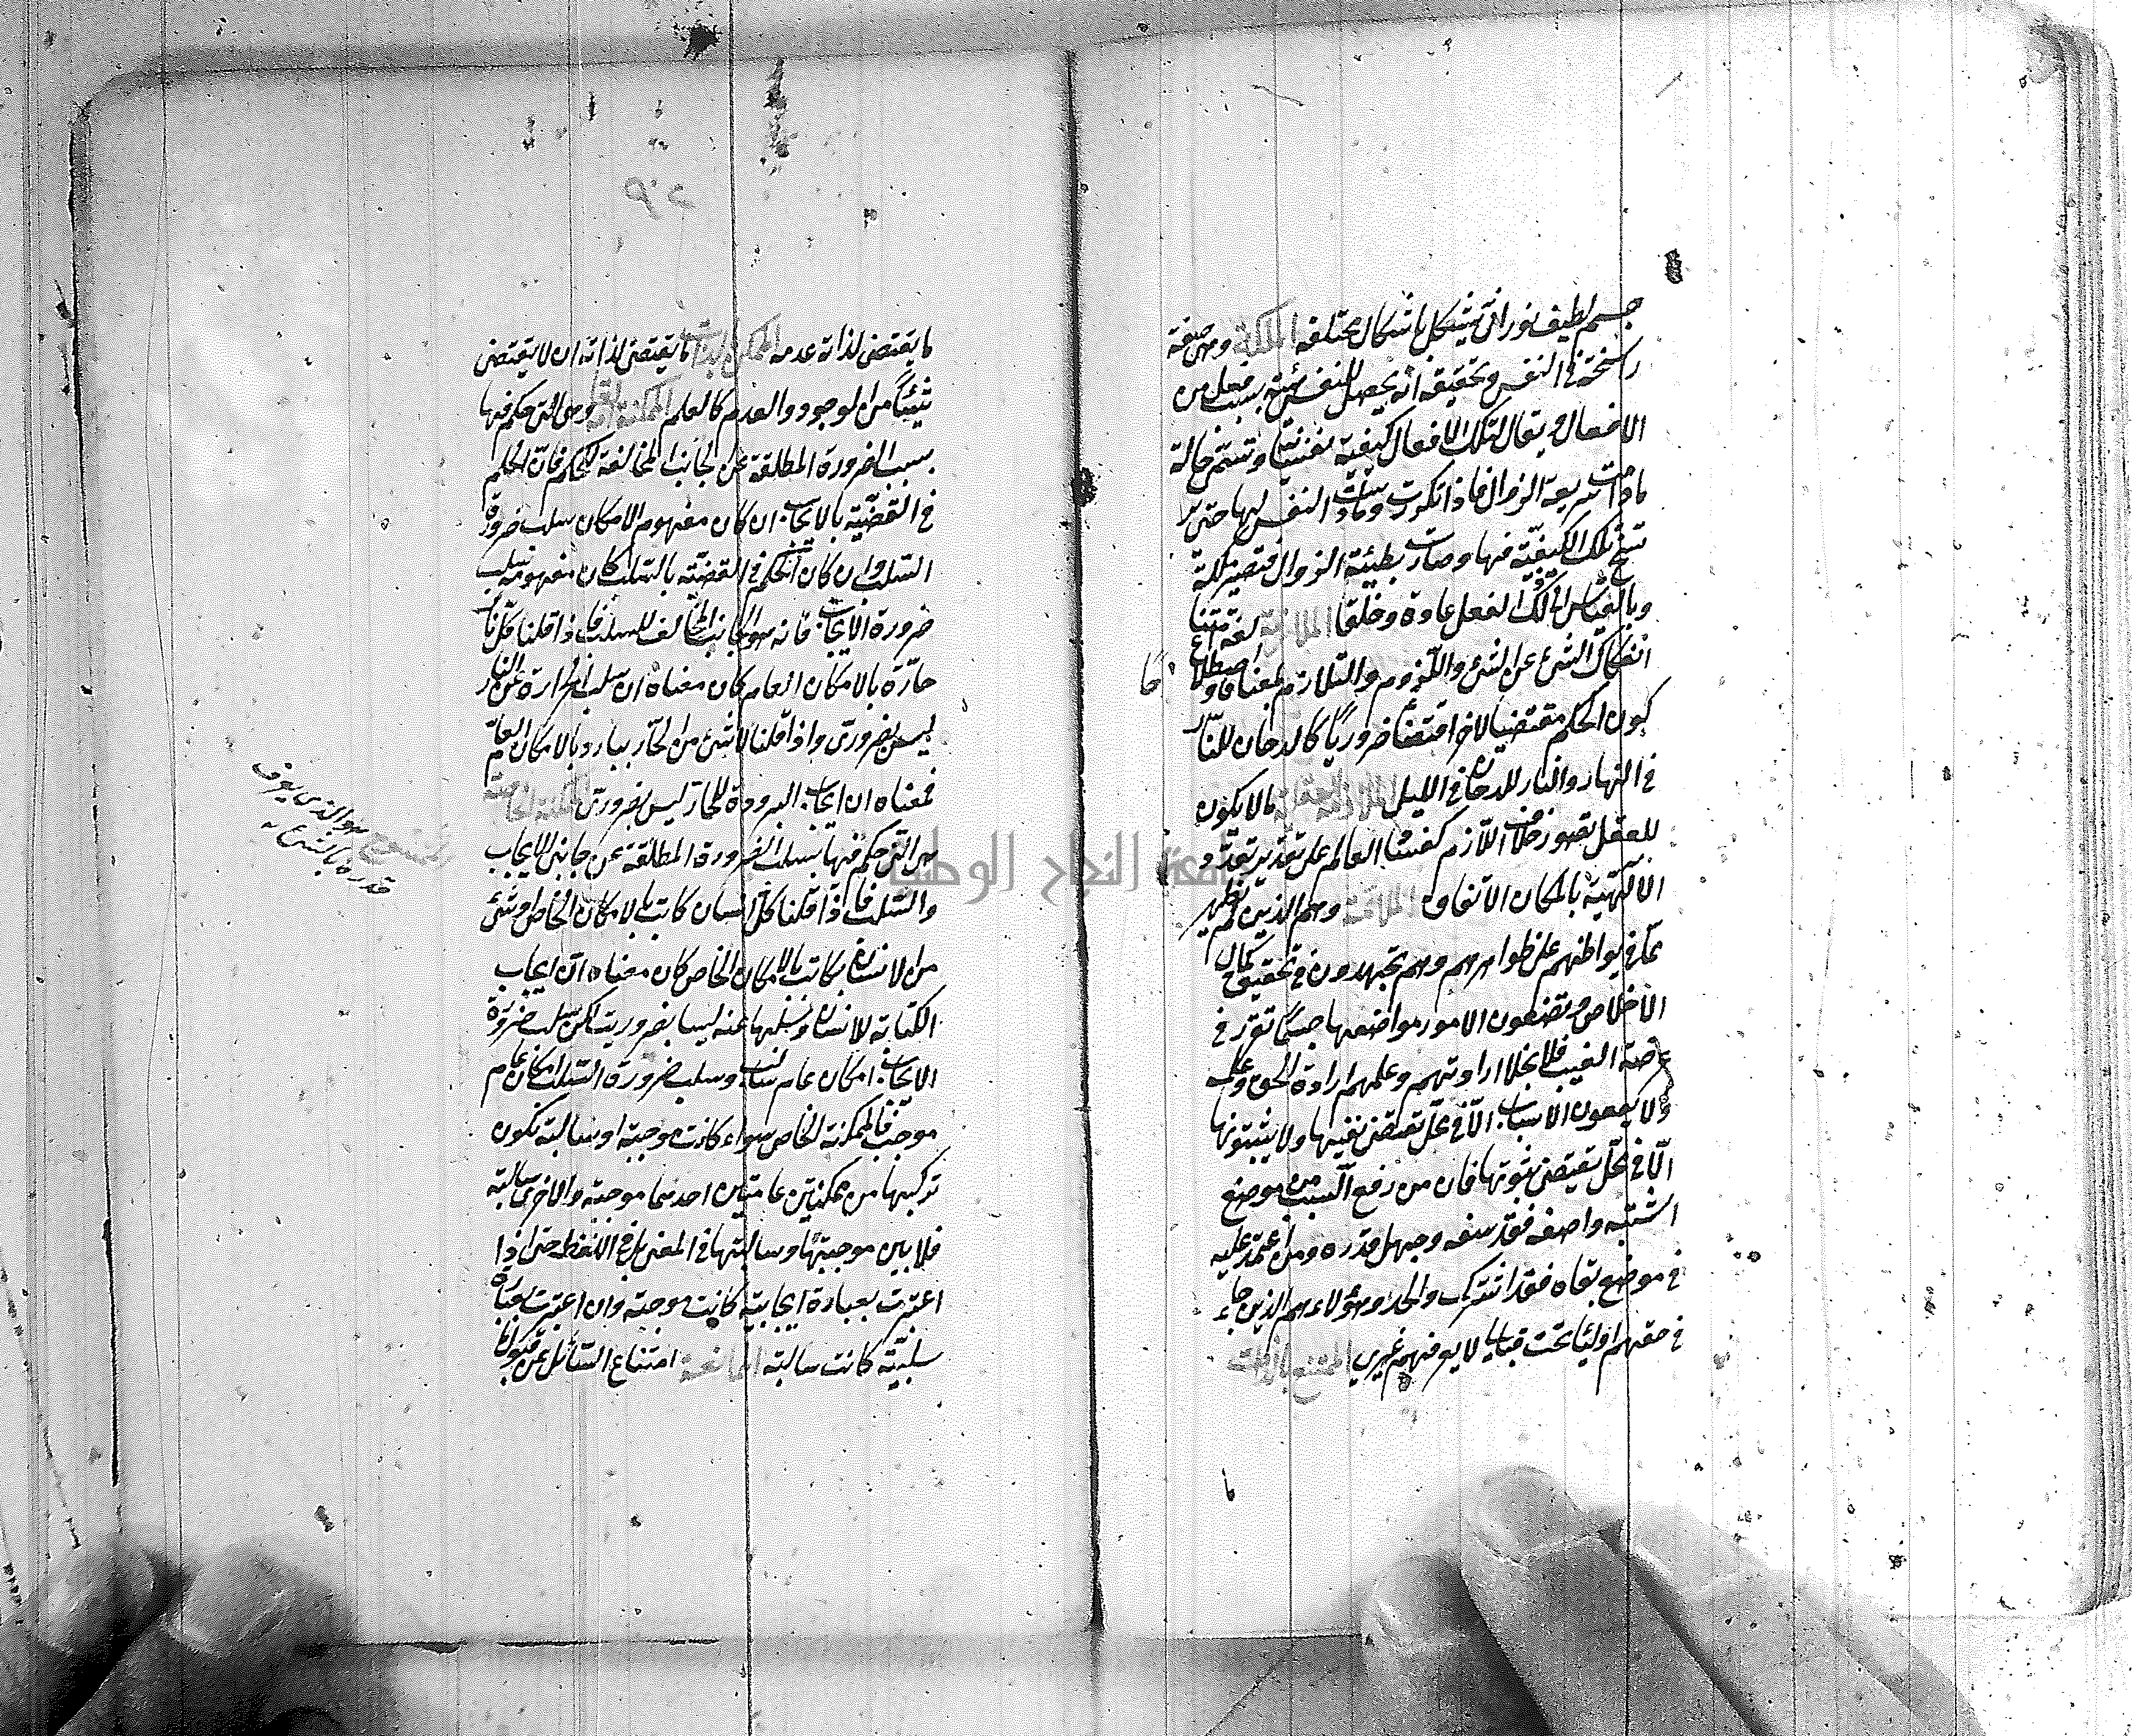 جسم لطيف نورانى يتشكل باشكال مختلفه الملكة وهى صفة
راسخة فى النفس وتحقيقه انه يحصل للنفس هيئة بسبب فعل من
الافعال ويقال لتلك الافعال كيفية نفسية وتسمى حالة
مادامت سريعة الزوال فاذا تكررت ومارست النفس لها حتى تر
تسخ تلك الكيفية فيها وصارت بطيئة الزوال فتصير ملكة
وبالقياس الى ذلك الفعل عادة وخلقا الملازمة لغة امتناع
انفكاك الشئ عن الشئ واللزوم والتلازم بمعناه واصطلاحا
كون الحكم مقتضيا لاخر اقتضاء ضروريا كالدخان للنار
فى النهار والنار للدخان فى الليل الملازمة العقلية مالا يكون
للعقل تصور خلاف اللازم كفساد العالم على تقدير تعدد
الالهية بامكان الاتفاق الملامتية وهم الذين لم يظهر
مما فى بواطنهم على ظواهرهم وهم يجتهدون فى تحقيق كمال
الاخلاص ويضعون الامور مواضعها حسبما تقرر فى
عرصة الغيب فلا يخالف ارادتهم وعلمهم ارادة الحق وعلمه
ولا ينفون الاسباب الا فى محل تقتضى نفيها ولا يثبتونها
الا فى محل يقتضى ثبوتها فان من رفع السبب من موضع
اثبته واضعه فقد سفه وجهل قدره ومن اعتمد عليه
فى موضع نفاه فقد اشرك والحد وهؤلاء هم الذين جاء
فى حقهم اوليائى تحت قبابى لا يعرفهم غيرى الممتنع بالذات
ما يقتضى لذاته عدمه الممكن بالذات ما يقتضى لذاته ان لا يقتضى
شيئا من الوجود والعدم كالعالم الممكنة العامة وهى التى حكم فيها
بسلب الضرورة المطلقة عن الجانب المخالف للحكم فان الحكم
فى القضية بالايجاب ان كان مفهوم الامكان سلب ضرورة
السلب وان كان الحكم فى القضية بالسلب كان مفهومه سلب
ضرورة الايجاب فانه هو الجانب المخالف للسلب فاذا قلنا كل نار
حارة بالامكان العام كان معناه ان سلب الحرارة عن النار
ليس بضرورى واذا قلنا لا شئ من الحار ببارد بالامكان العام
فمعناه ان ايجاب البرودة للحار ليس بضرورى الممكنة الخاصة
هى التى حكم فيها بسلب الضرورة المطلقة عن جانبى الايجاب
والسلب فاذا قلنا كل انسان كاتب بالامكان الخاص او لا شئ
من الانسان بكاتب بالامكان الخاص كان معناه ان ايجاب
الكتابة للانسان وسلبها عنه ليسا بضروريين لكن سلب ضرورة
الايجاب امكان عام سالب وسلب ضرورة السلب امكان عام
موجب فالممكنة الخاص سواء كانت موجبة او سالبة تكون
تركيبها من ممكنتين عامتين احديهما موجبة والاخرى سالبة
فلا بين موجبتها وسالبتها فى المعنى بل فى اللفظ حتى اذا
اعتبرت بعبارة ايجابية كانت موجبة وان اعتبرت بعبارة
سلبية كانت سالبة الممانعة امتناع السائل عن قبول
هو الذى يعرف
قدره بالشرع
جامعة النجاح الوطنية